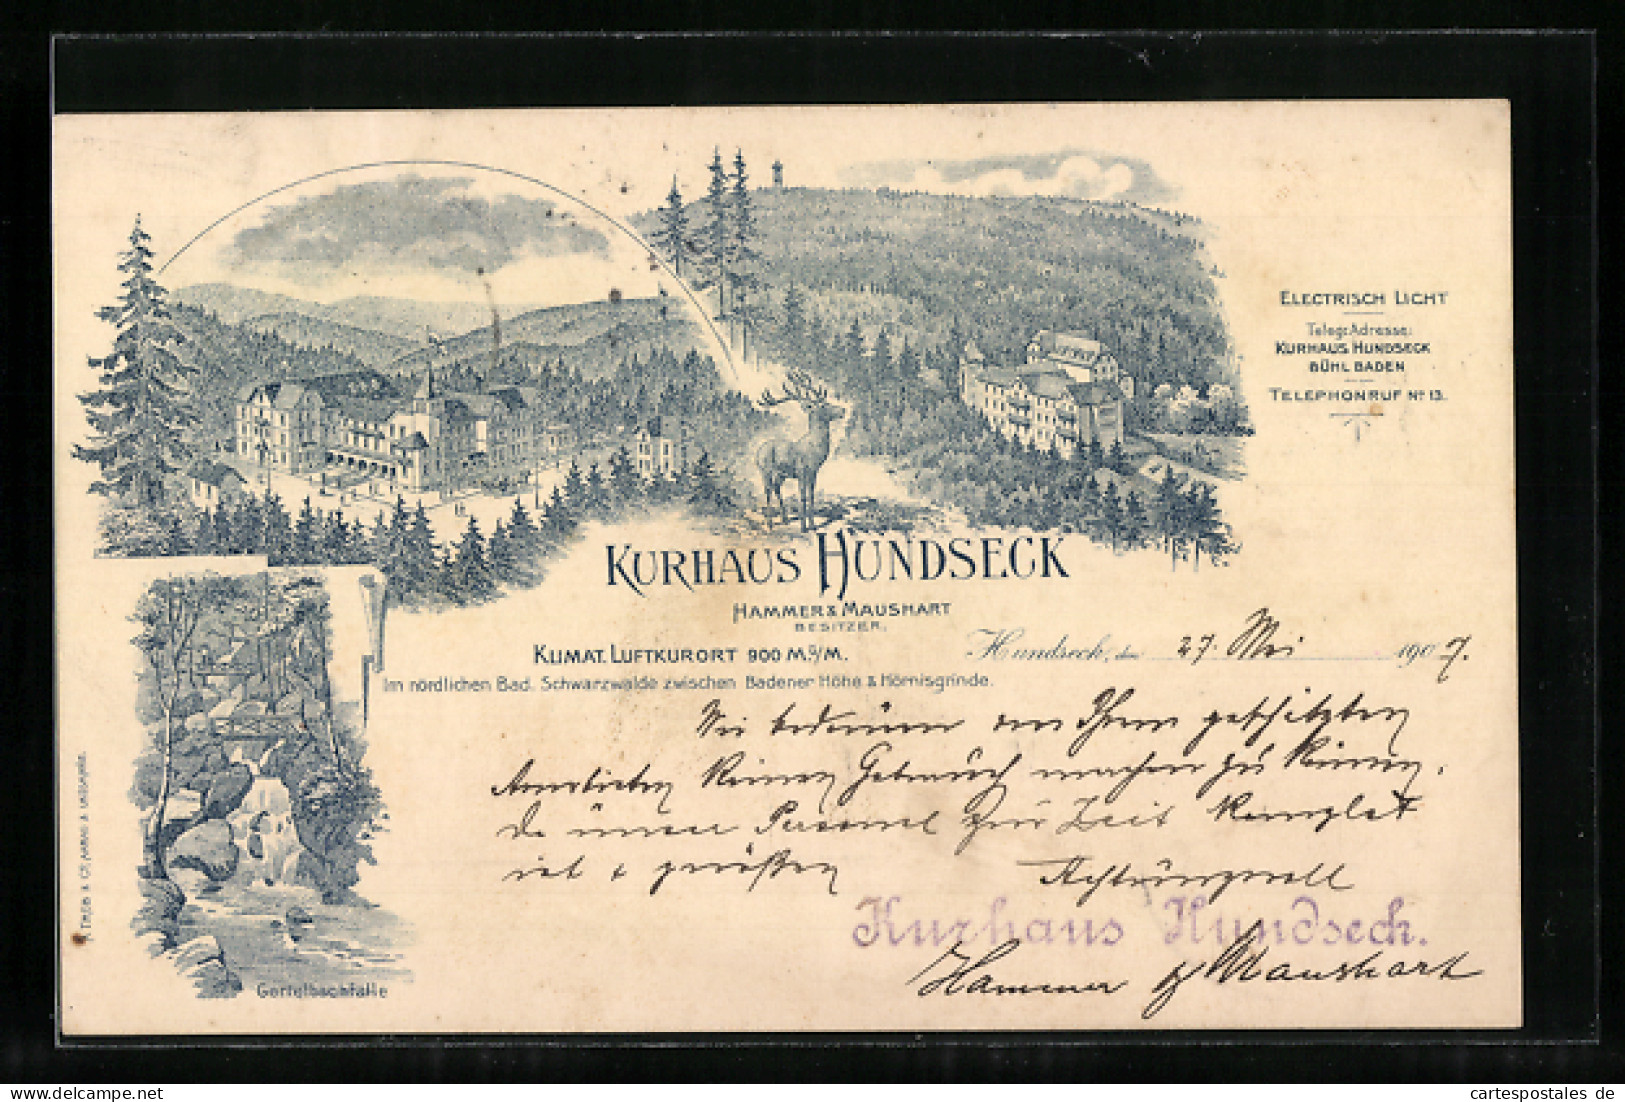 ELECTRISCH LICHT
Telegr. Adresse:
KURHAUS HUNDSECK
BÜHL BADEN
TELEPHONRUF No 13.
KURHAUS HUNDSECK
HAMMER & MAUSHART
BESITZER.
KLIMAT. LUFTKURORT 900 M.ü/M.
Im nördlichen Bad. Schwarzwalde zwischen Badener Höhe & Hornisgrinde.
Hundseck, den 27. Mai 1907.
Wir bedauern von Ihrem geschätzten
Anerbieten keinen Gebrauch machen zu können,
da unser Personal zur Zeit komplet
ist & grüßen
Achtungsvoll
Kurhaus Hundseck.
Hammer & Maushart
Gertelbachfälle